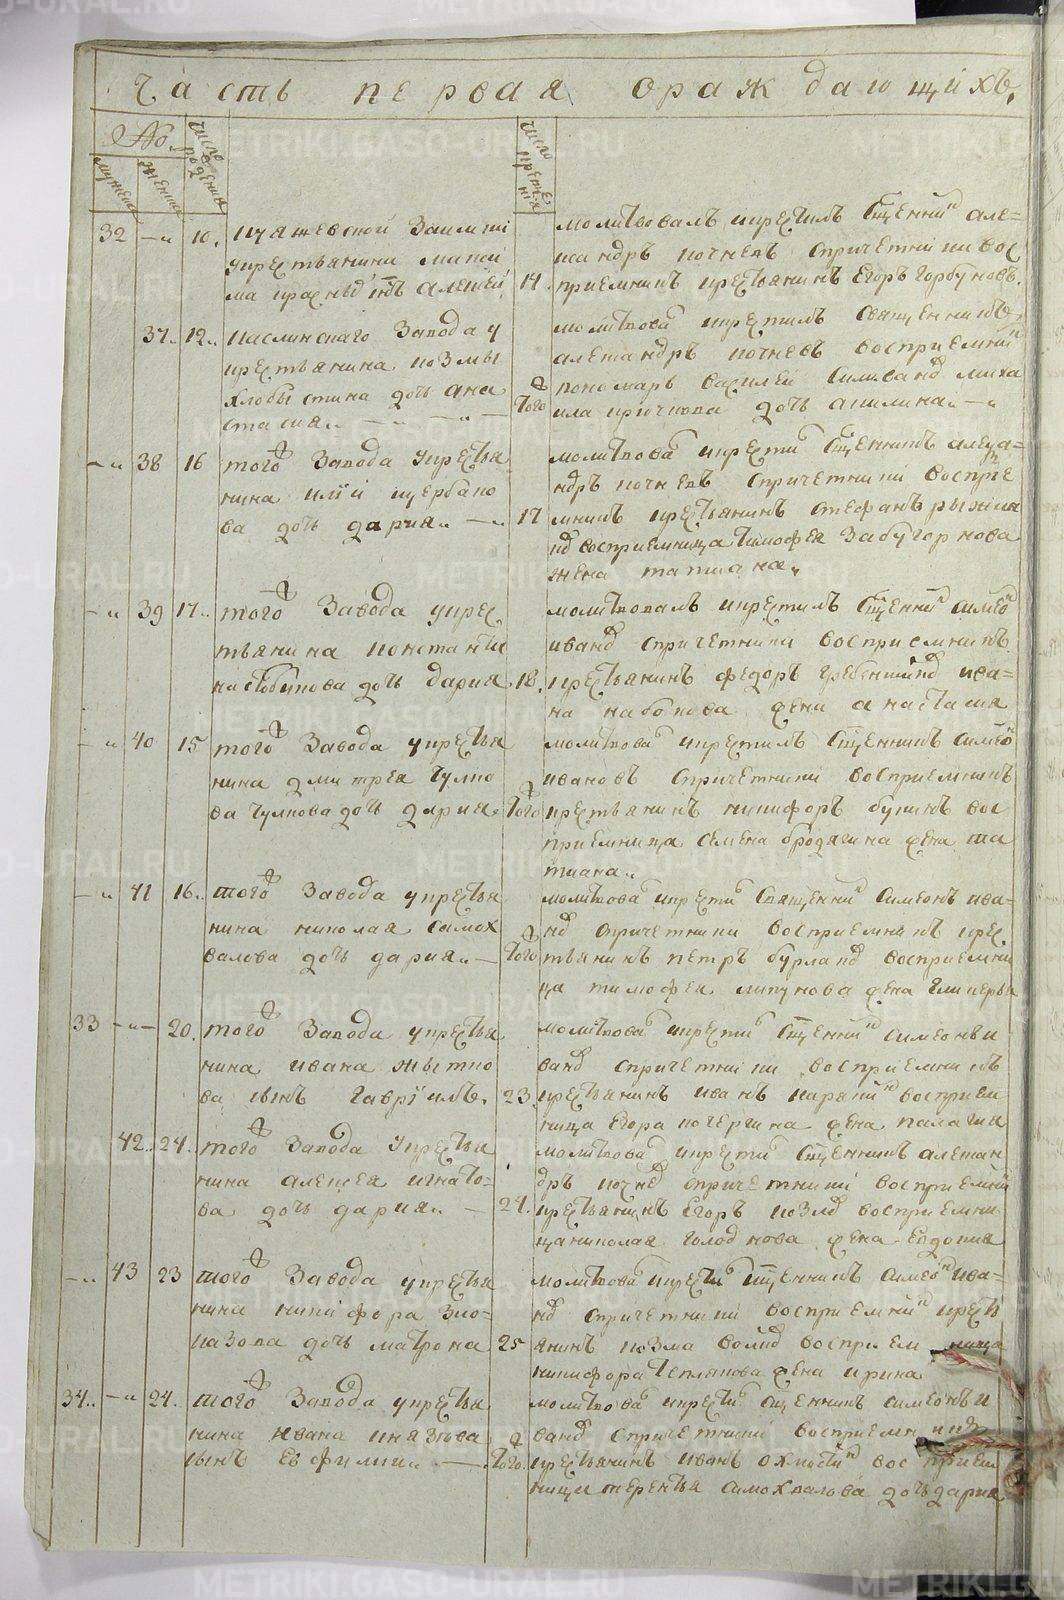 Часть первая ораждающихъ.
№
мужеска
женска
число рождения
число крещения
32 —„ 10. Куяшевской Заимки
укрестьянина макси
ма красных сынъ алексей
молитвовалъ икрестилъ Священникъ але=
ксандръ кочневъ спричетники вос
14. приемникъ крестьянинъ Егоръ Горбуновъ.
37. 12. Каслинскаго Завода у
крестьянина козмы
Хлобыстина дочь ана
стасия
молитвова икрестилъ священникъ
алеѯандръ кочневъ восприемник
пономарь василей
Того миха
ила крючкова дочь акилина
—„ 38 16 того Завода укрестья
нина илїи щербако
ва дочь дария
молитвова икрести Священникъ алеѯа=
ндръ кочневъ спричетники восприе
17 мникъ крестьянинъ стефанъ
восприемница тимофея Забугорнова
жена татиана
—„ 39 17. того Завода укрес
тьянина константи
на дочь дария
молитвовалъ икрестилъ Священник симео
иванов спричетники восприемникъ
18. крестьянинъ федоръ Гребенщиков ива=
на набокова жена анастасия
—„ 40 15 того Завода укрестья
нина дмитрея
дочь дария
молитвова икрестилъ Священникъ симео
ивановъ спричетники восприемникъ
Того крестьянинъ никифоръ бунинъ вос
приемница семена бродягина жена та
тиана
—„ 41 16. того Завода укрестья
нина николая самох
валова дочь дария
молитвова икрести Священник симеонъ ива=
нов спричетники восприемникъ крес
Того тьянинъ петръ восприемни
ца тимофея липунова жена Гликерья
33 —„— 20. того Завода укрестья
нина ивана жытко
ва сынъ Гаврїилъ.
молитвова икрести Священник симеонъ и
ванов спричетники восприемникъ
23. крестьянинъ иванъ восприем
ница Егора кочергина жена палагия
42. 24. того Завода укрестья
нина алексея игнато=
ва дочь дария
молитвова икрести Священникъ алеѯан
дръ кочнев спричетники восприемник
24. крестьянинъ Егоръ козлов восприемни
ца николая Голоднова жена Евдокия
—„ 43 23 того Завода укрестья
нина никифора Зло=
казова дочь матрона
молитвова икрести Священникъ симео ива=
нов спричетники восприемник кресть
25 янинъ козма волков восприем ница
никифора Теплякова жена ирина
34. —„ 24. того Завода укрестья
нина ивана князева
сынъ Евфимии
молитвова икрести Священникъ симеонъ и
ванов спричетники восприемникъ
Того. крестьянинъ иванъ восприем
ница терентья самохвалова дочь дария
METRIKI.GASO-URAL.RU